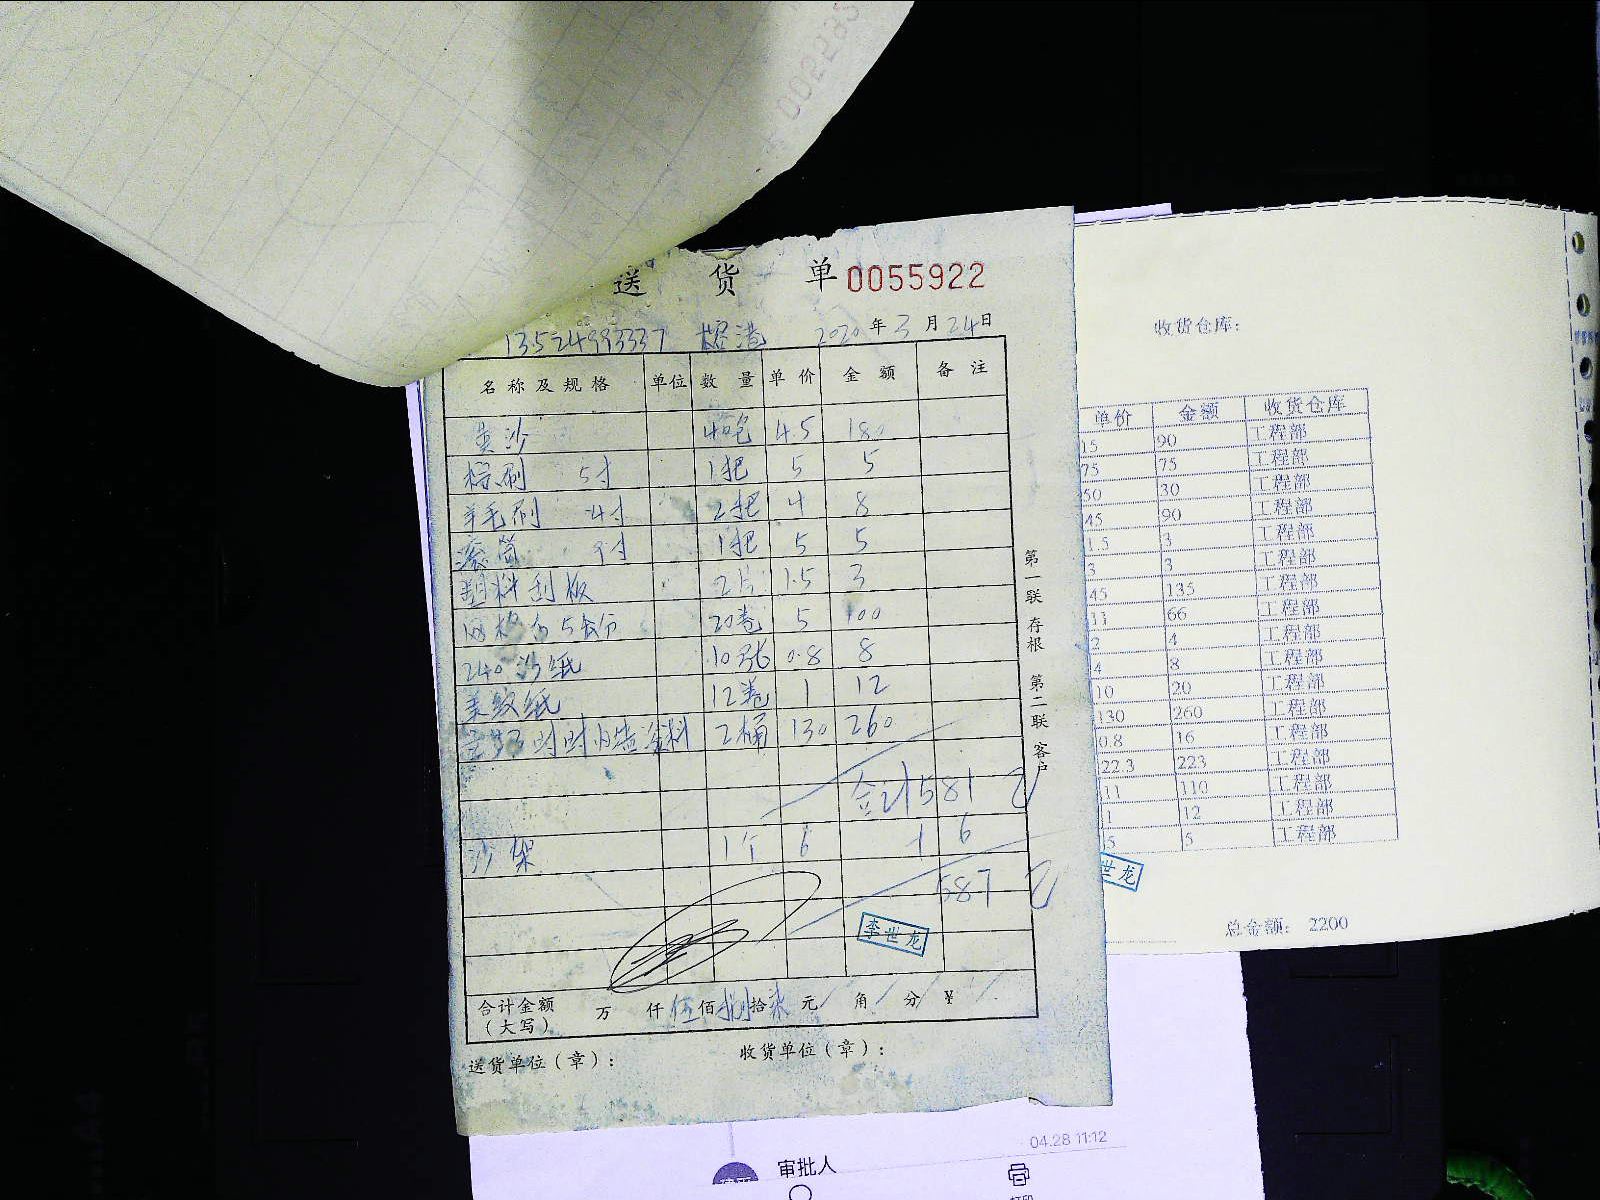 送 货 单 0055922
13524993337 榕港 2020年3月24日
名称及规格 单位 数量 单价 金额 备注
黄沙 40包 4.5 180
棕刷 5寸 1把 5 5
羊毛刷 4寸 2把 4 8
滚筒 9寸 1把 5 5
塑料刮板 2片 1.5 3
网格布5公分 20卷 5 100
240沙纸 10张 0.8 8
美纹纸 12卷 1 12
时时内墙涂料 2桶 130 260
合计581
沙架 1个 6 +6
587
李世龙
合计金额（大写） 万 仟伍佰捌拾柒元 角 分 ¥
送货单位（章）： 收货单位（章）：
第一联 存根 第二联 客户
收货仓库:
单价 金额 收货仓库
15 90 工程部
75 75 工程部
50 30 工程部
45 90 工程部
1.5 3 工程部
3 3 工程部
45 135 工程部
11 66 工程部
2 4 工程部
4 8 工程部
10 20 工程部
130 260 工程部
0.8 16 工程部
22.3 223 工程部
11 110 工程部
1 12 工程部
5 5 工程部
世龙
总金额: 2200
04.28 11:12
审批人
打印